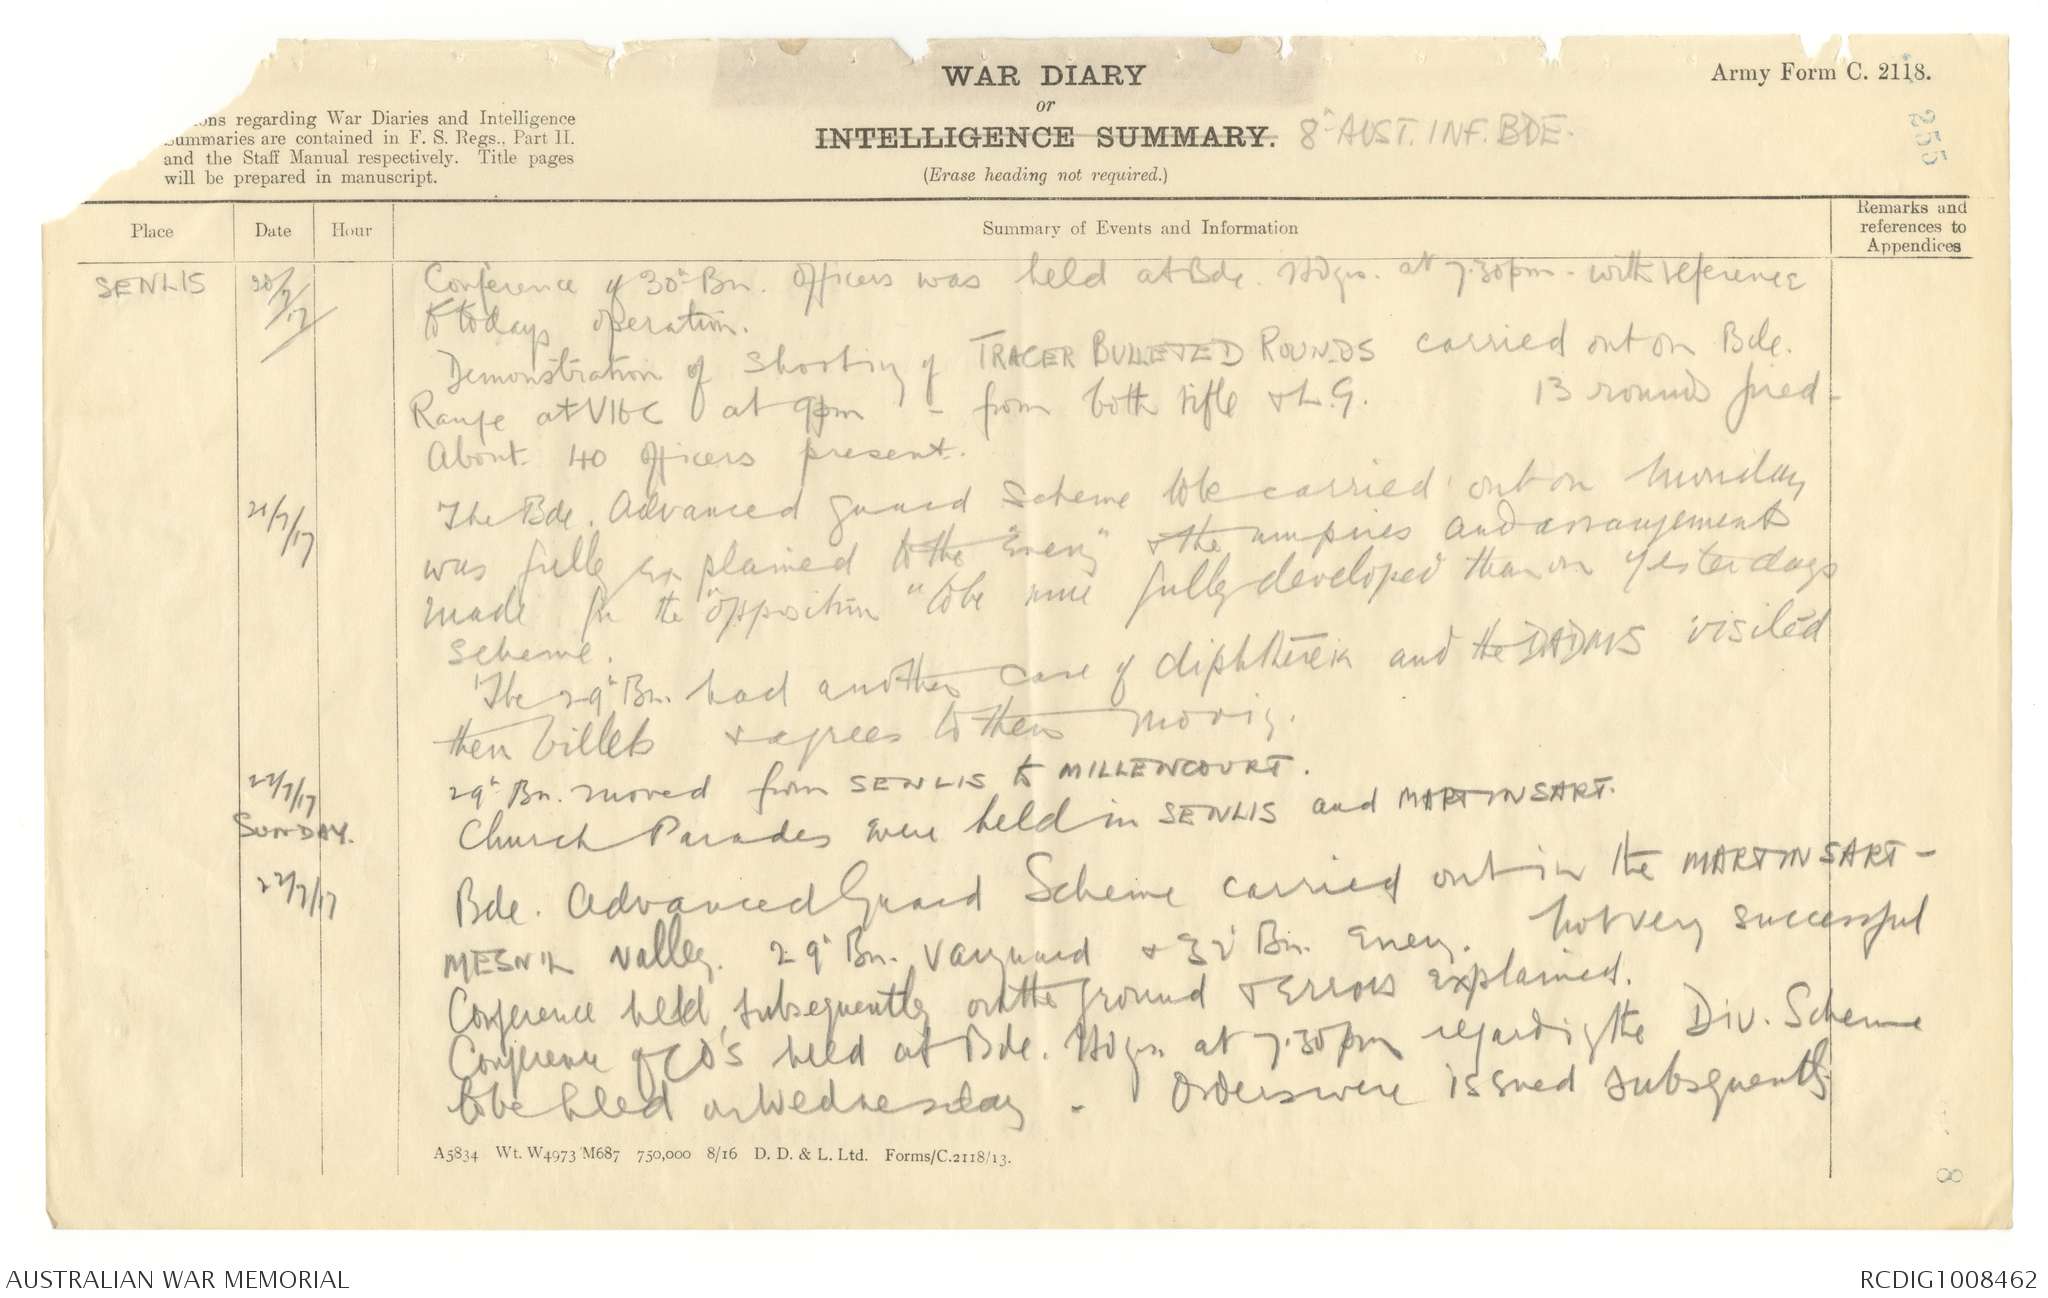 WAR DIARY
or
INTELLIGENCE SUMMARY. 8th AUST. INF. BDE.
(Erase heading not required.)
Army Form C. 2118.
255
ons regarding War Diaries and Intelligence
Summaries are contained in F. S. Regs., Part II.
and the Staff Manual respectively. Title pages
will be prepared in manuscript.
Place Date Hour Summary of Events and Information Remarks and references to Appendices
SENLIS 20/7/17 Conference of 30th Bn. Officers was held at Bde. Hdqrs. at 7.30pm - with reference
to todays operation.
Demonstration of shooting of TRACER BULLETED ROUNDS carried out on Bde.
Range at V16C at 9pm - from both rifle & L.G. 13 rounds fired -
About 40 officers present.
21/7/17 The Bde. Advanced guard scheme to be carried out on Monday
was fully explained to the "Enemy" & the umpires and arrangements
made for the "opposition" to be more fully developed than on yesterdays
scheme.
The 29th Bn. had another case of diphtheria and the DADMS visited
their billets & agrees to their moving.
22/7/17 29th Bn. moved from SENLIS to MILLENCOURT.
SUNDAY. Church Parades were held in SENLIS and MARTINSART.
22/7/17 Bde. Advanced Guard Scheme carried out in the MARTINSART -
MESNIL Valley. 29th Bn. Vanguard & 32nd Bn. Enemy. Not very successful
Conference held subsequently on the ground & Errors explained.
Conference of CO's held at Bde. Hdqrs. at 7.30pm regarding the Div. Scheme
to be hled on Wednesday - Orders were issued subsequently
A5834 Wt. W4973 M687 750,000 8/16 D. D. & L. Ltd. Forms/C.2118/13.
8
AUSTRALIAN WAR MEMORIAL
RCDIG1008462